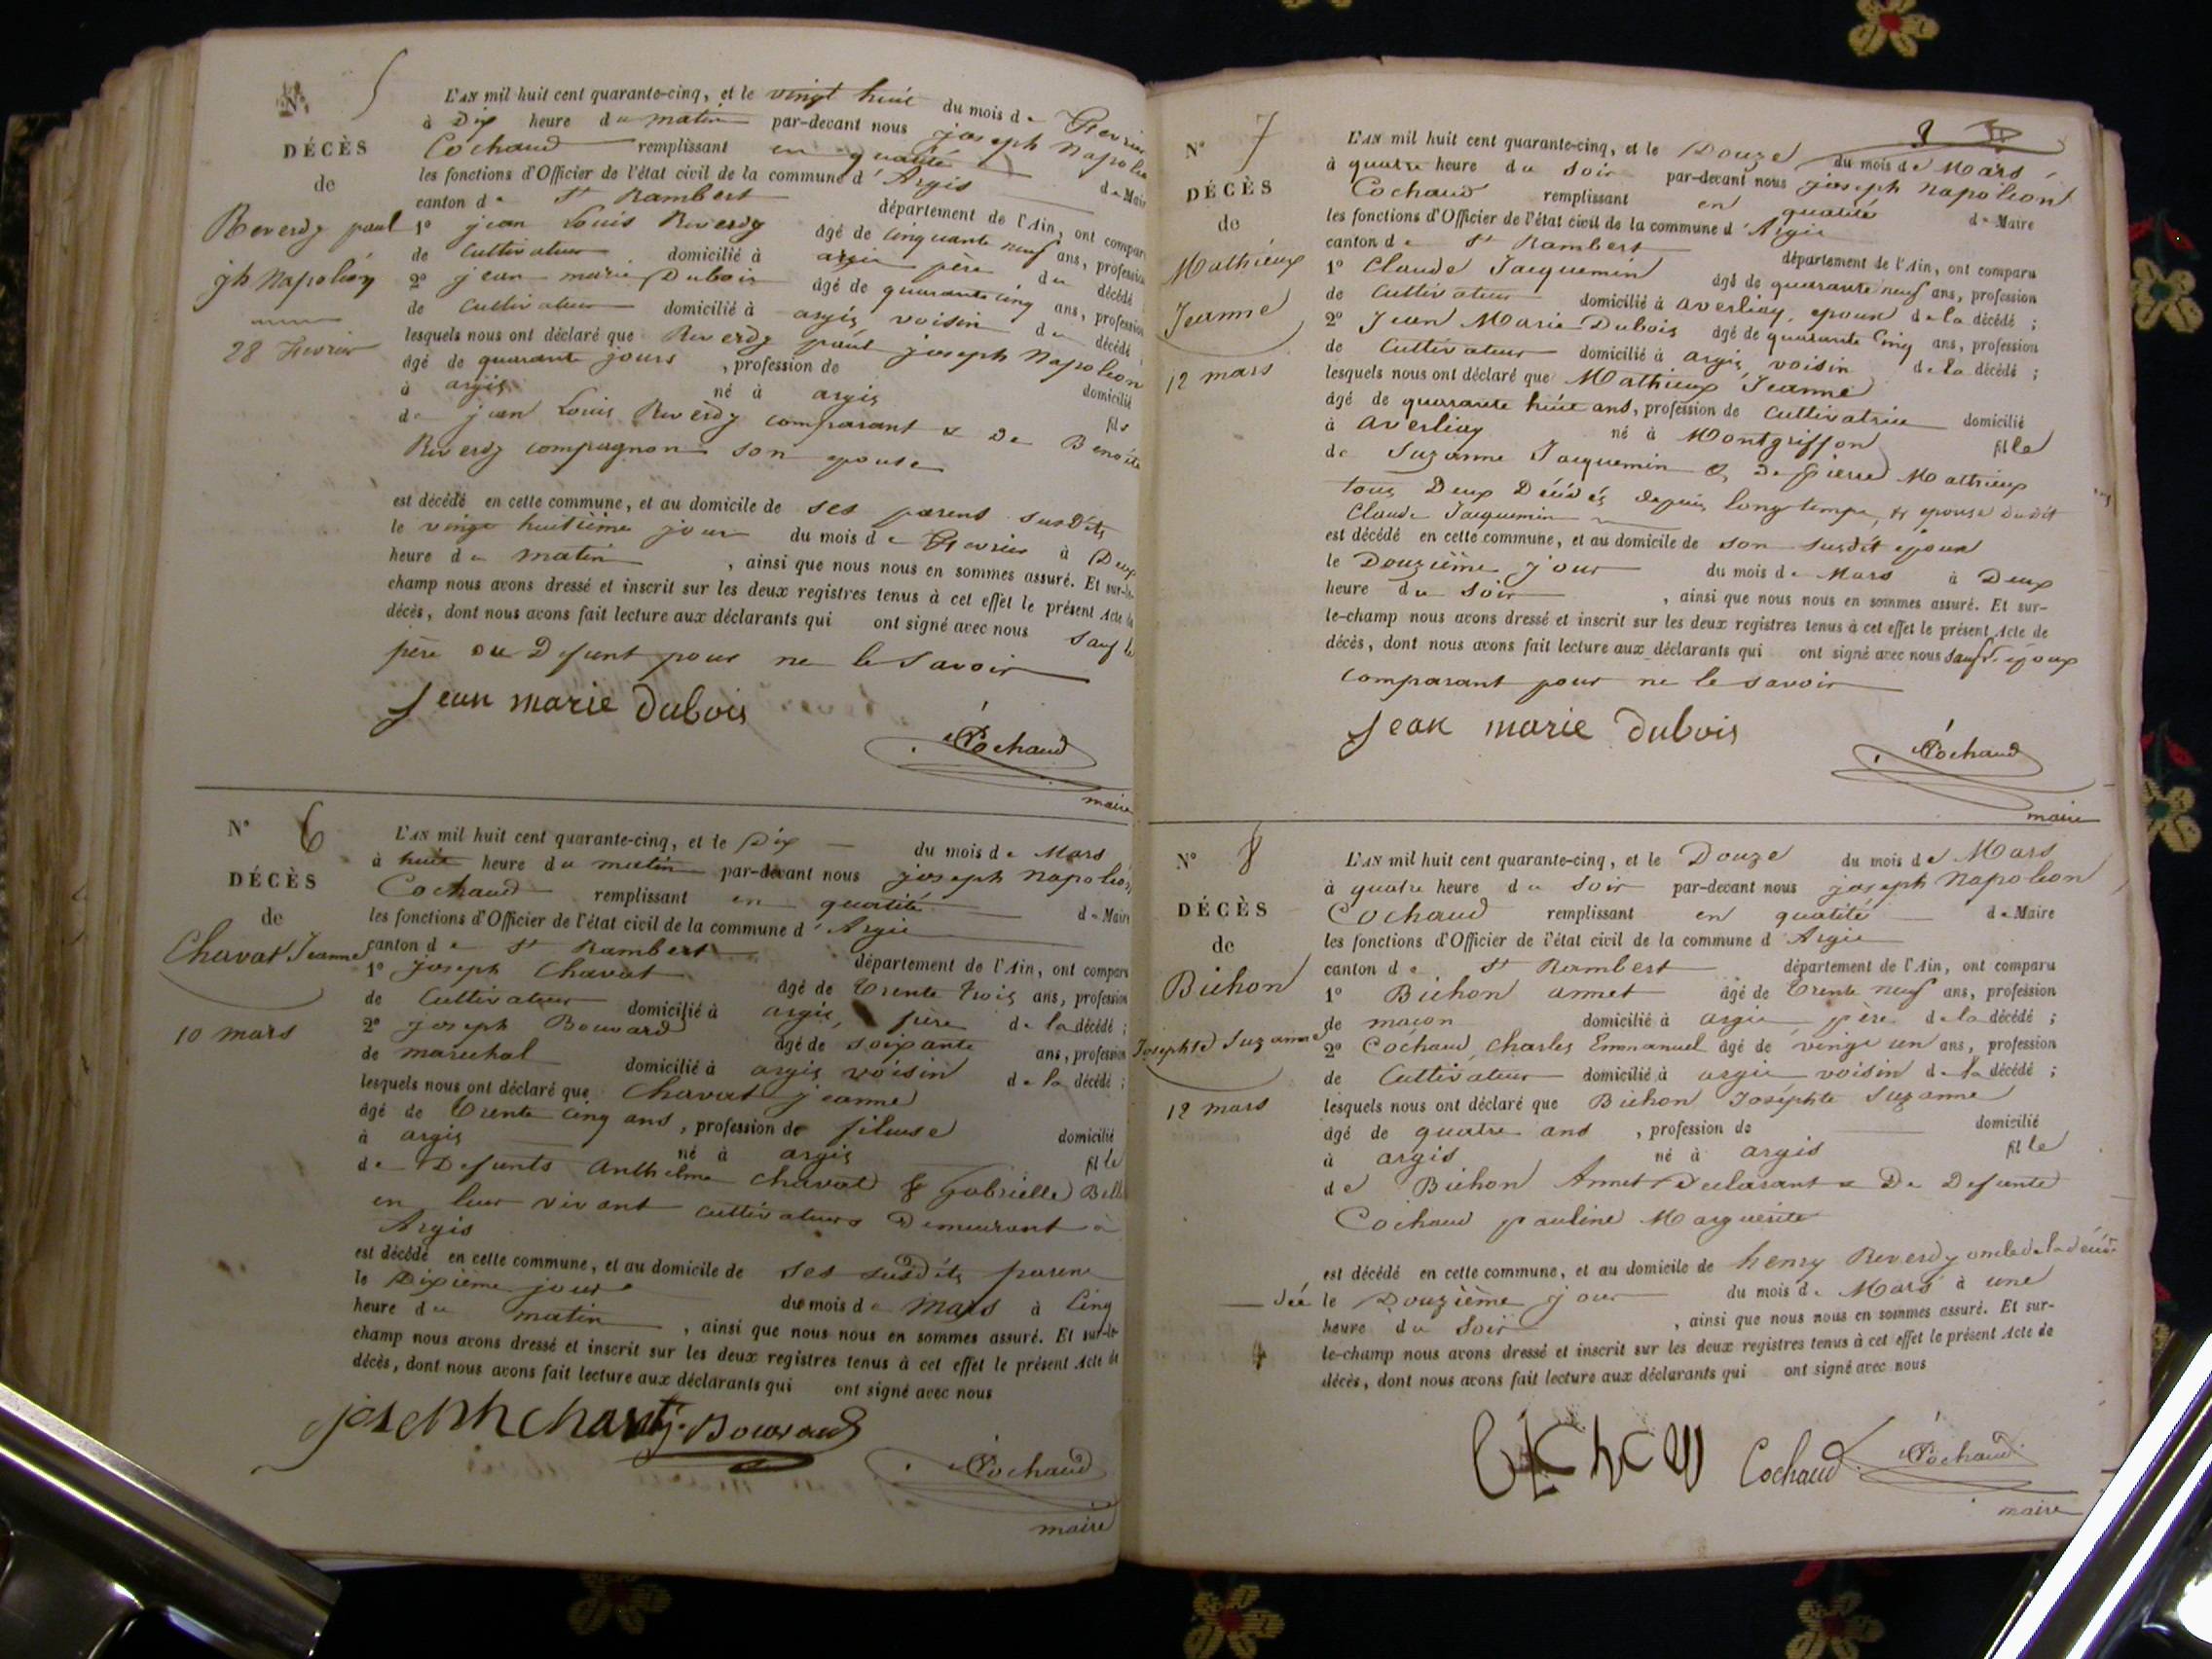 N° 5
DÉCÈS
de
Reverdy paul
jh Napoléon
28 Fevrier
L'AN mil huit cent quarante-cinq, et le vingt huit du mois de Fevrier
à Dix heure du matin par-devant nous joseph Napoléon
Cochaud remplissant en qualité de Maire
les fonctions d'Officier de l'état civil de la commune d'Argis
canton de St Rambert département de l'Ain, ont comparu
1° jean Louis Reverdy âgé de cinquante neuf ans, profession
de Cultivateur domicilié à argis père du décédé
2° jean marie Dubois âgé de quarante cinq ans, profession
de Cultivateur domicilié à argis voisin du décédé ;
lesquels nous ont déclaré que Reverdy paul joseph Napoleon
âgé de quarante jours , profession de domicilié
à argis né à argis fils
de jean Louis Reverdy comparant & De Benoite
Reverdy compagnon son epouse
est décédé en cette commune, et au domicile de ses parens susdits
le vingt huitième jour du mois de Fevrier à Deux
heure du matin , ainsi que nous nous en sommes assuré. Et sur-le-
champ nous avons dressé et inscrit sur les deux registres tenus à cet effet le présent Acte de
décès, dont nous avons fait lecture aux déclarants qui ont signé avec nous sauf le
père du Defunt pour ne le savoir
jean marie dubois
Cochaud
maire
N° 6
DÉCÈS
de
Chavat Jeanne
10 mars
L'AN mil huit cent quarante-cinq, et le Dix du mois de Mars
à huit heure du matin par-devant nous joseph napoléon
Cochaud remplissant en qualité de Maire
les fonctions d'Officier de l'état civil de la commune d'Argis
canton de St Rambert département de l'Ain, ont comparu
1° joseph Chavat âgé de trente trois ans, profession
de Cultivateur domicilié à argis, frère de la décédé ;
2° joseph Bouvard âgé de soixante ans, profession
de marechal domicilié à argis voisin de la décédé ;
lesquels nous ont déclaré que Chavat jeanne
âgé de trente cinq ans , profession de fileuse domicilié
à argis né à argis fille
de Defunts Anthelme Chavat & Gabrielle
en leur vivant cultivateurs Demeurant à
Argis
est décédé en cette commune, et au domicile de ses susdits parens
le Dixième jour du mois de Mars à Cinq
heure du matin , ainsi que nous nous en sommes assuré. Et sur-le-
champ nous avons dressé et inscrit sur les deux registres tenus à cet effet le présent Acte de
décès, dont nous avons fait lecture aux déclarants qui ont signé avec nous
joseph chavat j. Bouvard
Cochaud
maire
N° 7
DÉCÈS
de
Mathieux
Jeanne
12 mars
L'AN mil huit cent quarante-cinq, et le Douze du mois de Mars
à quatre heure du soir par-devant nous joseph Napoléon
Cochaud remplissant en qualité de Maire
les fonctions d'Officier de l'état civil de la commune d'Argis
canton de St Rambert département de l'Ain, ont comparu
1° Claude Jacquemin âgé de quarante neuf ans, profession
de Cultivateur domicilié à averliay, epoux de la décédé ;
2° Jean Marie Dubois âgé de quarante Cinq ans, profession
de Cultivateur domicilié à argis, voisin de la décédé ;
lesquels nous ont déclaré que Mathieux Jeanne
âgé de quarante huit ans, profession de cultivatrice domicilié
à averliay né à Montgriffon fille
de Suzanne Jacquemin & De pierre Mathieux
tous Deux Décédés depuis long-temps, & epouse dudit
Claude Jacquemin
est décédé en cette commune, et au domicile de son susdit époux
le Douzième jour du mois de Mars à Deux
heure du soir , ainsi que nous nous en sommes assuré. Et sur-
le-champ nous avons dressé et inscrit sur les deux registres tenus à cet effet le présent Acte de
décès, dont nous avons fait lecture aux déclarants qui ont signé avec nous sauf l'epoux
comparant pour ne le savoir
jean marie dubois
Cochaud
maire
N° 8
DÉCÈS
de
Bichon
Josephte Suzanne
12 mars
L'AN mil huit cent quarante-cinq, et le Douze du mois de Mars
à quatre heure du soir par-devant nous joseph Napoleon
Cochaud remplissant en qualité de Maire
les fonctions d'Officier de l'état civil de la commune d'Argis
canton de St Rambert département de l'Ain, ont comparu
1° Bichon annet âgé de trente neuf ans, profession
de macon domicilié à argis père de la décédé ;
2° Cochaud Charles Emmanuel âgé de vingt un ans, profession
de Cultivateur domicilié à argis voisin de la décédé ;
lesquels nous ont déclaré que Bichon Joséphte Suzanne
âgé de quatre ans , profession de domicilié
à argis né à argis fille
de Bichon Annet Déclarant & De Defunte
Cochaud pauline Marguerite
est décédé en cette commune, et au domicile de henry Reverdy oncle de la décé-
dée le Douzième jour du mois de Mars à une
heure du soir , ainsi que nous nous en sommes assuré. Et sur-
le-champ nous avons dressé et inscrit sur les deux registres tenus à cet effet le présent Acte de
décès, dont nous avons fait lecture aux déclarants qui ont signé avec nous
Cochaud Cochaud
maire